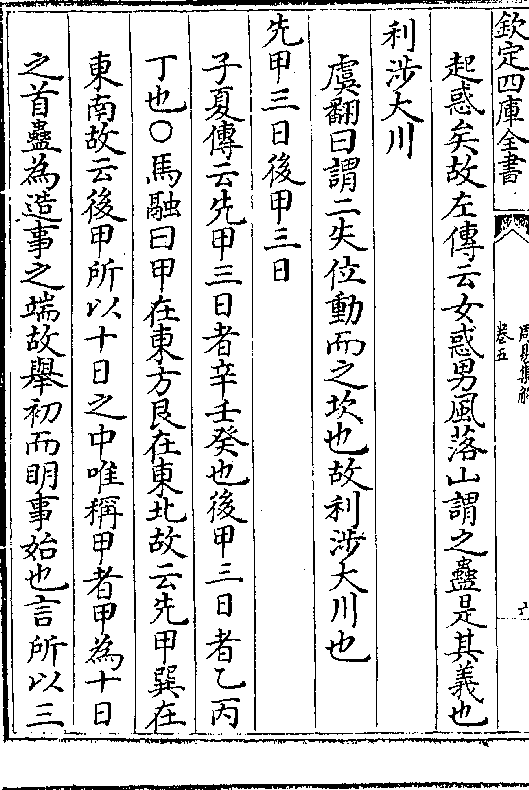 欽定四庫全書
周易集解
卷五
起惑矣故左傳云女惑男風落山謂之蠱是其義也
利涉大川
虞翻曰謂二失位動而之坎也故利涉大川也
先甲三日後甲三日
子夏傳云先甲三日者辛壬癸也後甲三日者乙丙
丁也○馬融曰甲在東方艮在東北故云先甲巽在
東南故云後甲所以十日之中唯稱甲者甲為十日
之首蠱為造事之端故舉初而明事始也言所以三